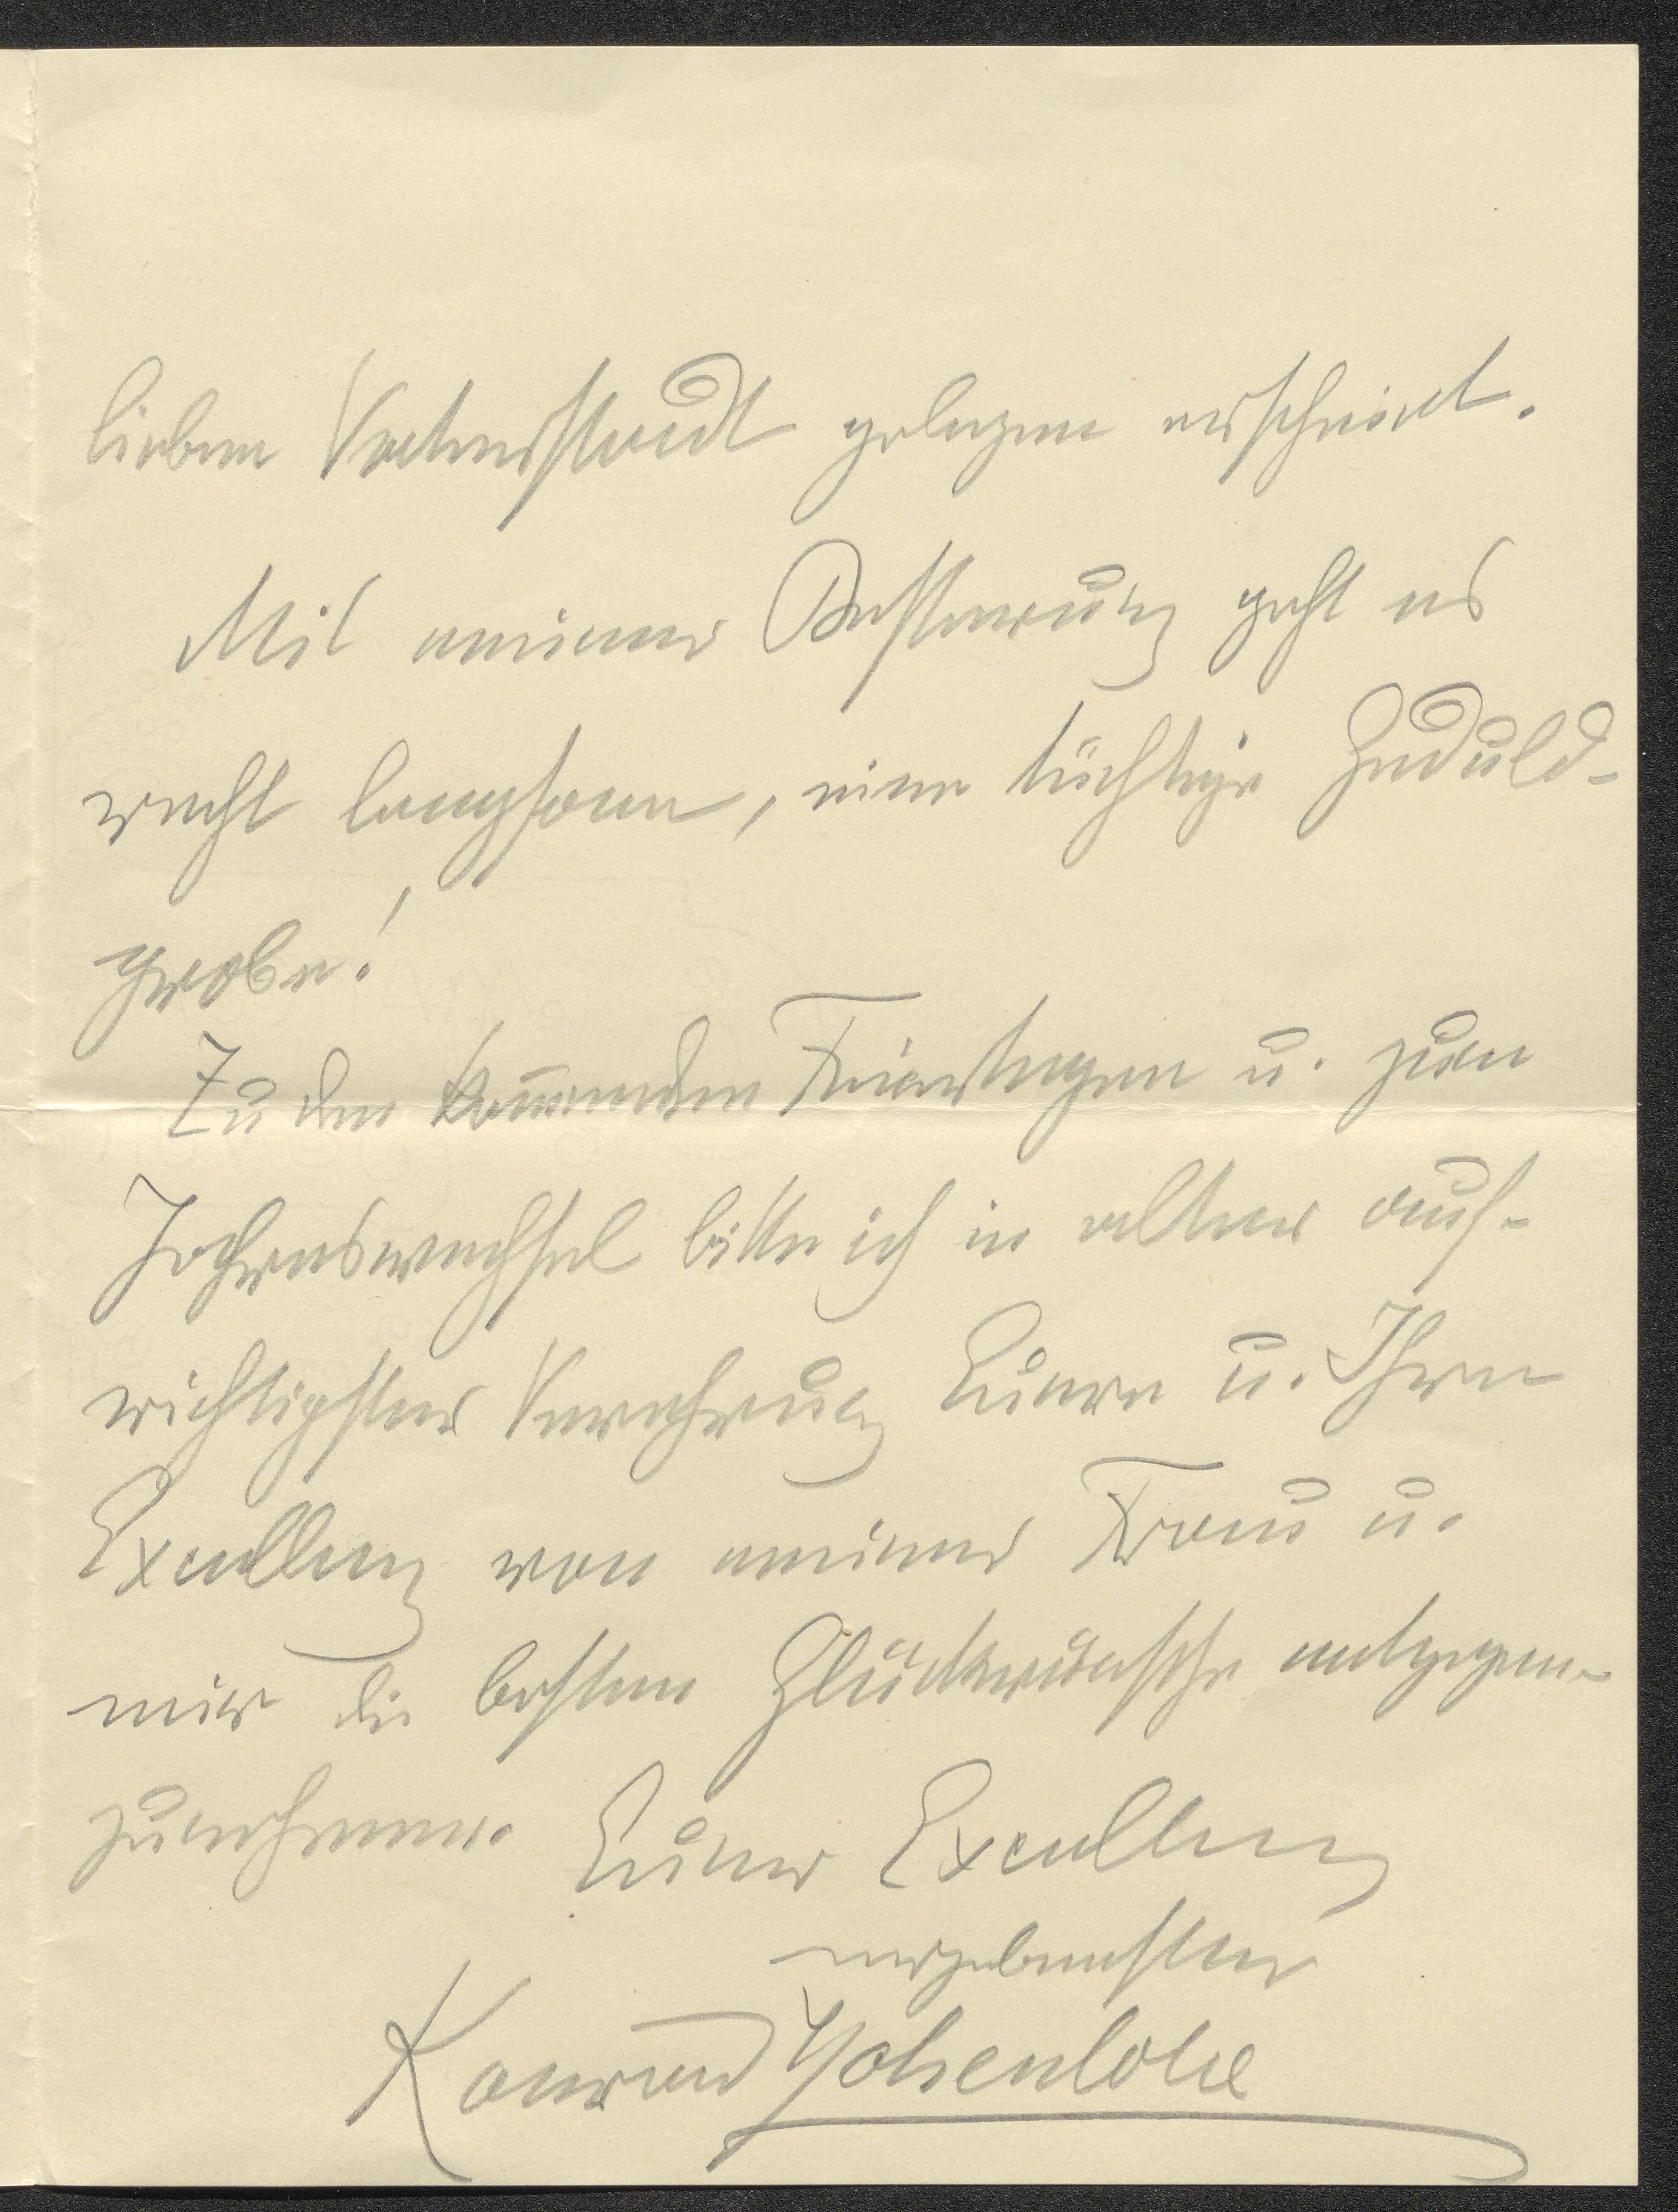 lieben Vaterstadt gelegen erscheint.
Mit meiner Besserung geht es
recht langsam, eine tüchtige Geduld-
probe!
Zu den kom̅enden Feiertagen u. zum
Jahreswechsel bitte ich in alter auf-
richtigster Verehrung Euere u. Ihre
Excellenz von meiner Frau u.
mir die besten Glückwünsche entgegen-
zunehmen. Euer Excellenz
ergebenster
Konrad Hohenlohe